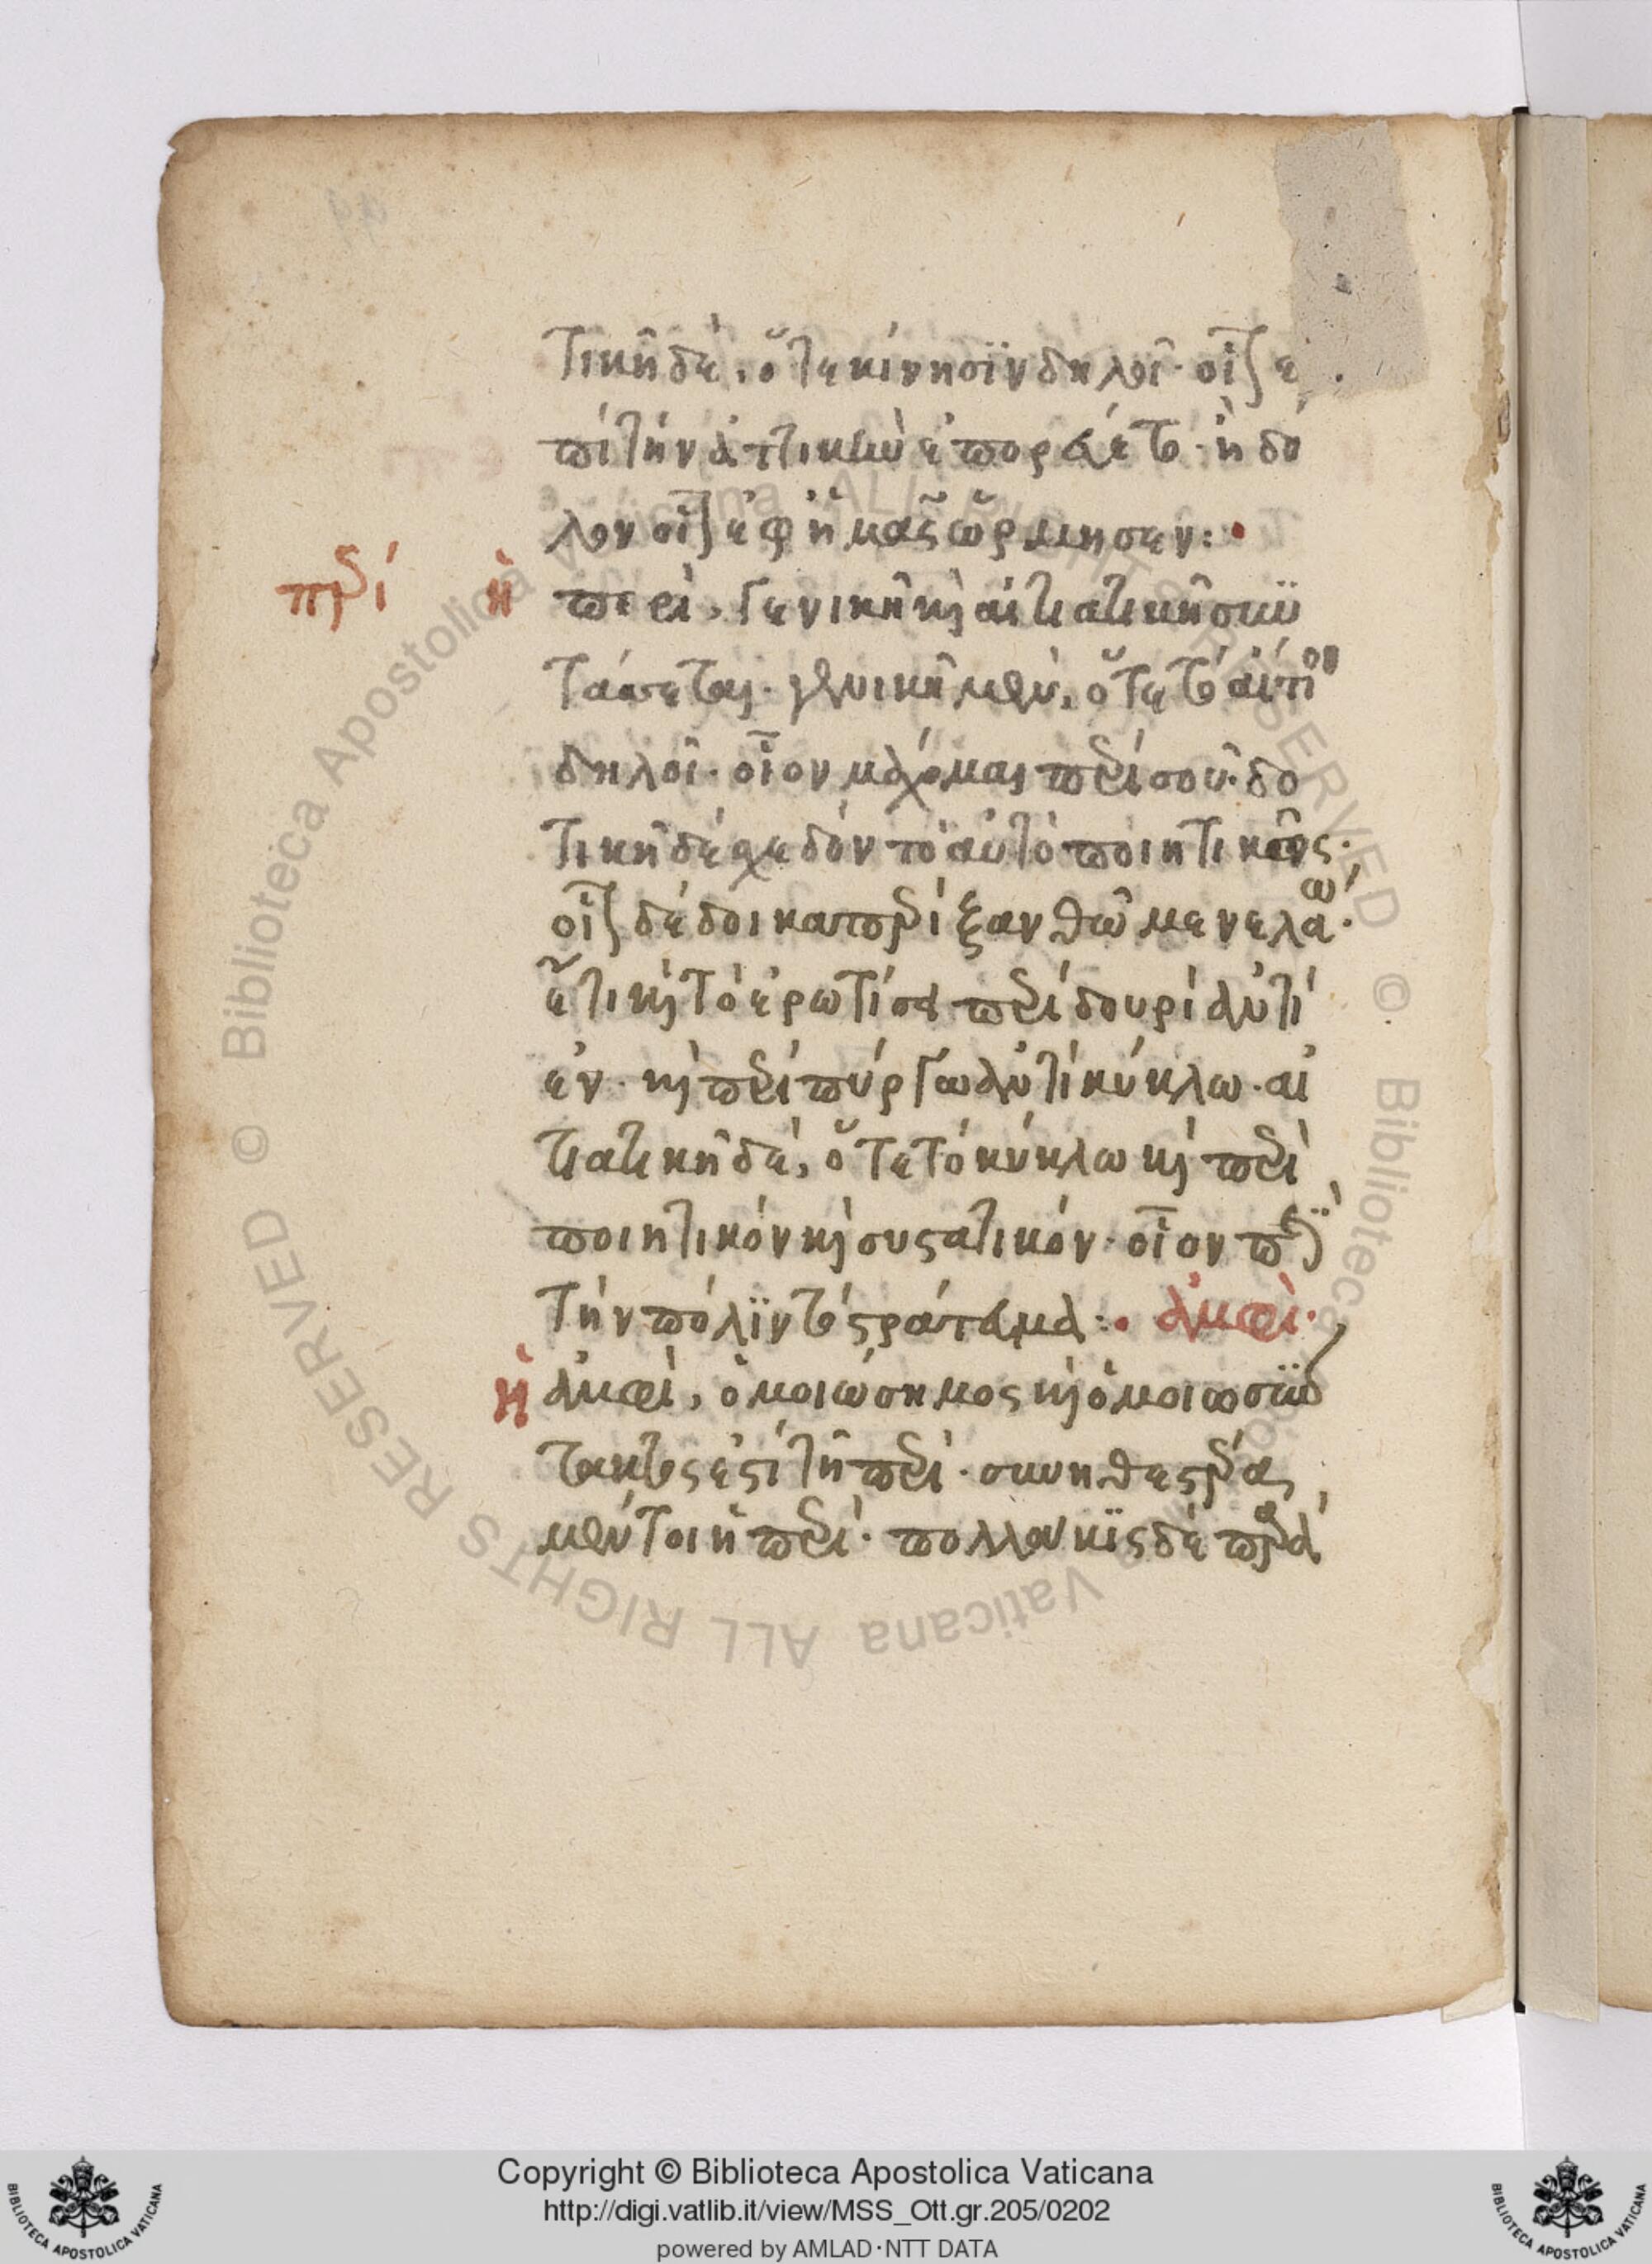 τικῆ δὲ, ὅτε κίνησϊν δηλοῖ· οἷον ἐ
πὶ τὴν ἀττικὴν ἐπορεύετο· ἢ δό
λον οἷον ἐφ ἡμᾶς ὥρμησεν:·
περί
ἡ περὶ, γενικῆ καὶ αἰτιατικῆ συν
τάσσεται· γενικῆ μὲν, ὅτε τὸ αἴτιον
δηλοῖ· οἷον μάχομαι περί σοῦ· δο
τικῆ δὲ σχεδόν τὸ αὐτὸ ποιητικῶς·
οἷον δέδοικα περὶ ξανθῶ μενελάω·
ἔτι καὶ τὸ ἐρωτίσα περὶ δουρὶ ἀντὶ
ἐν· καὶ περὶ πύργω ἀντὶ κύκλω· αἰ
τιατικῆ δὲ, ὅτε τὸ κύκλω καὶ περὶ
ποιητικόν καὶ συστατικόν· οἷον περὶ
τὴν πόλϊν τὸ στράτευμα:· ἀμφὶ·
ἡ ἀμφὶ, ὁμοιώσημος καὶ ὁμοιοσύν
τακτος ἐστὶ τῆ περὶ· συνηθεστέρα
μέντοι ἡ περὶ· πολλάκϊς δὲ παρὰ
Copyright © Biblioteca Apostolica Vaticana
http://digi.vatlib.it/view/MSS_Ott.gr.205/0202
powered by AMLAD·NTT DATA
BIBLIOTECA APOSTOLICA VATICANA
BIBLIOTECA APOSTOLICA VATICANA
© Biblioteca Apostolica Vaticana ALL RIGHTS RESERVED
© Biblioteca Apostolica Vaticana ALL RIGHTS RESERVED